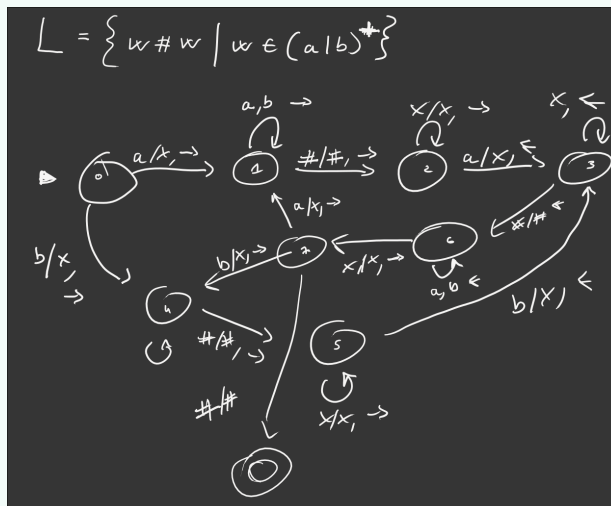 L = { w # w | w ∈ (a|b)* }
a,b →
x/x, →
x, ←
a/x, →
#/#, →
a/x, ←
0
1
2
3
a/x, →
#/# ←
b/x, →
b/x, →
7
x/x, →
6
a,b ←
b/x, ←
4
#/#, →
5
#/#
x/x, →